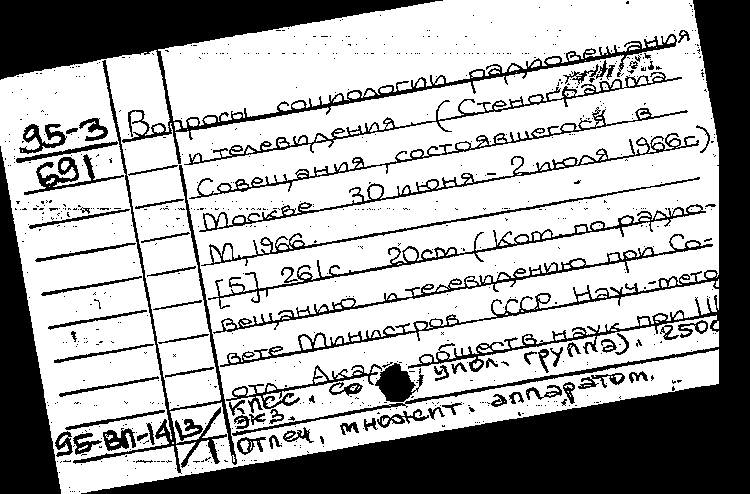 95-3
691
Вопросы социологии радиовещания
и телевидения. (Стенограмма
Совещания, состоявшегося в
Москве 30 июня - 2 июля 1966г.)
М., 1966.
[5], 261с. 20см. (Ком. по радио-
вещанию и телевидению при Со-
вете Министров СССР. Науч.-метод
отд. Акад. обществ. наук при ЦК
КПСС. упол. группа). 2500
экз.
Отпеч. множит. аппаратом.
95-ВП-1413/1